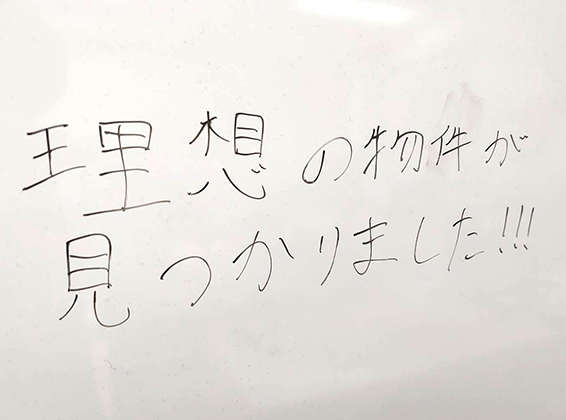 理想の物件が
見つかりました!!!